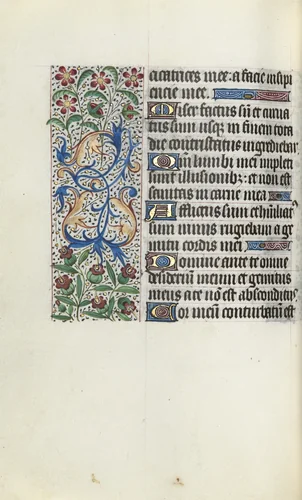 catrices mee: a facie insipi
encie mee.
Miser factus sū et curua
tus sum usq; in finem tota
die contristatus ingrediebar.
Qm̄ lumbi mei impleti
sunt illusionib;: et non est
sanitas in carne mea
Afflictus sum et humiliat'
sum nimis rugiebam a ge
mitu cordis mei
Domine ante te omne
desiderium meum et gemitus
meus a te nō est absconditus
Cor meū conturbatū est